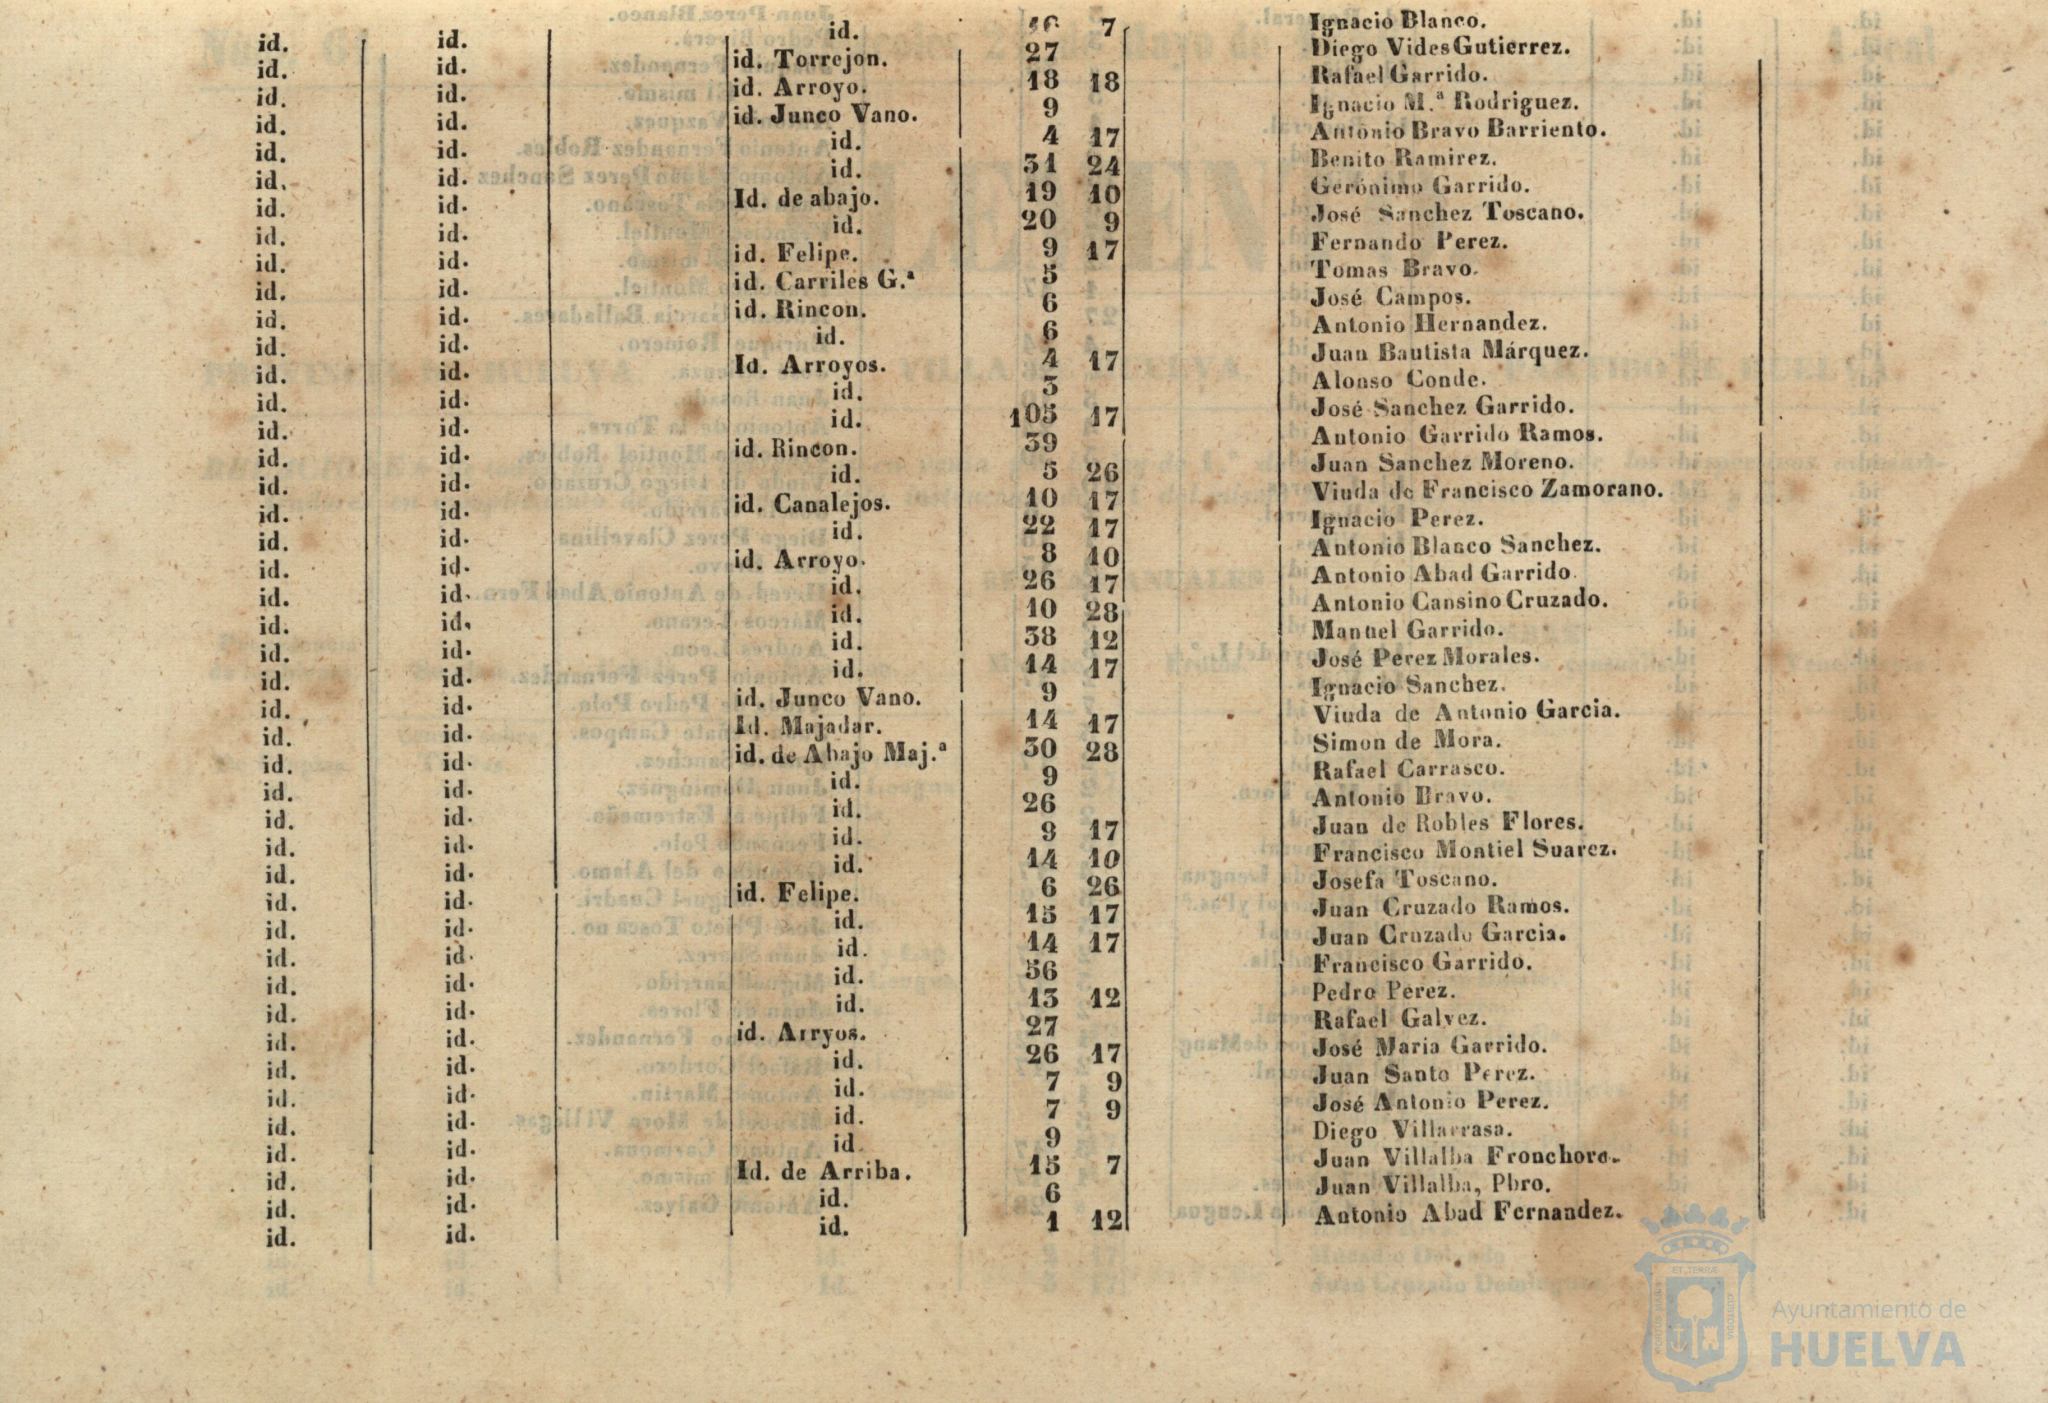 id. id. id. 16 7 Ignacio Blanco.
id. id. id. Torrejon. 27 Diego Vides Gutierrez.
id. id. id. Arroyo. 18 18 Rafael Garrido.
id. id. id. Junco Vano. 9 Ignacio M.ª Rodriguez.
id. id. id. 4 17 Antonio Bravo Barriento.
id. id. id. 31 24 Benito Ramirez.
id. id. Id. de abajo. 19 10 Gerónimo Garrido.
id. id. id. 20 9 José Sanchez Toscano.
id. id. id. Felipe. 9 17 Fernando Perez.
id. id. id. Carriles G.ª 5 Tomas Bravo.
id. id. id. Rincon. 6 José Campos.
id. id. id. 6 Antonio Hernandez.
id. id. Id. Arroyos. 4 17 Juan Bautista Márquez.
id. id. id. 3 Alonso Conde.
id. id. id. 105 17 José Sanchez Garrido.
id. id. id. Rincon. 39 Antonio Garrido Ramos.
id. id. id. 5 26 Juan Sanchez Moreno.
id. id. id. Canalejos. 10 17 Viuda de Francisco Zamorano.
id. id. id. 22 17 Ignacio Perez.
id. id. id. Arroyo. 8 10 Antonio Blanco Sanchez.
id. id. id. 26 17 Antonio Abad Garrido.
id. id. id. 10 28 Antonio Cansino Cruzado.
id. id. id. 38 12 Manuel Garrido.
id. id. id. 14 17 José Perez Morales.
id. id. id. Junco Vano. 9 Ignacio Sanchez.
id. id. Id. Majadar. 14 17 Viuda de Antonio Garcia.
id. id. id. de Abajo Maj.ª 30 28 Simon de Mora.
id. id. id. 9 Rafael Carrasco.
id. id. id. 26 Antonio Bravo.
id. id. id. 9 17 Juan de Robles Flores.
id. id. id. 14 10 Francisco Montiel Suarez.
id. id. id. Felipe. 6 26 Josefa Toscano.
id. id. id. 15 17 Juan Cruzado Ramos.
id. id. id. 14 17 Juan Cruzado Garcia.
id. id. id. 56 Francisco Garrido.
id. id. id. 13 12 Pedro Perez.
id. id. id. Arryos. 27 Rafael Galvez.
id. id. id. 26 17 José Maria Garrido.
id. id. id. 7 9 Juan Santo Perez.
id. id. id. 7 9 José Antonio Perez.
id. id. id 9 Diego Villarrasa.
id. id. Id. de Arriba. 15 7 Juan Villalba Fronchoro.
id. id. id. 6 Juan Villalba, Pbro.
id. id. id. 1 12 Antonio Abad Fernandez.
Ayuntamiento de
HUELVA